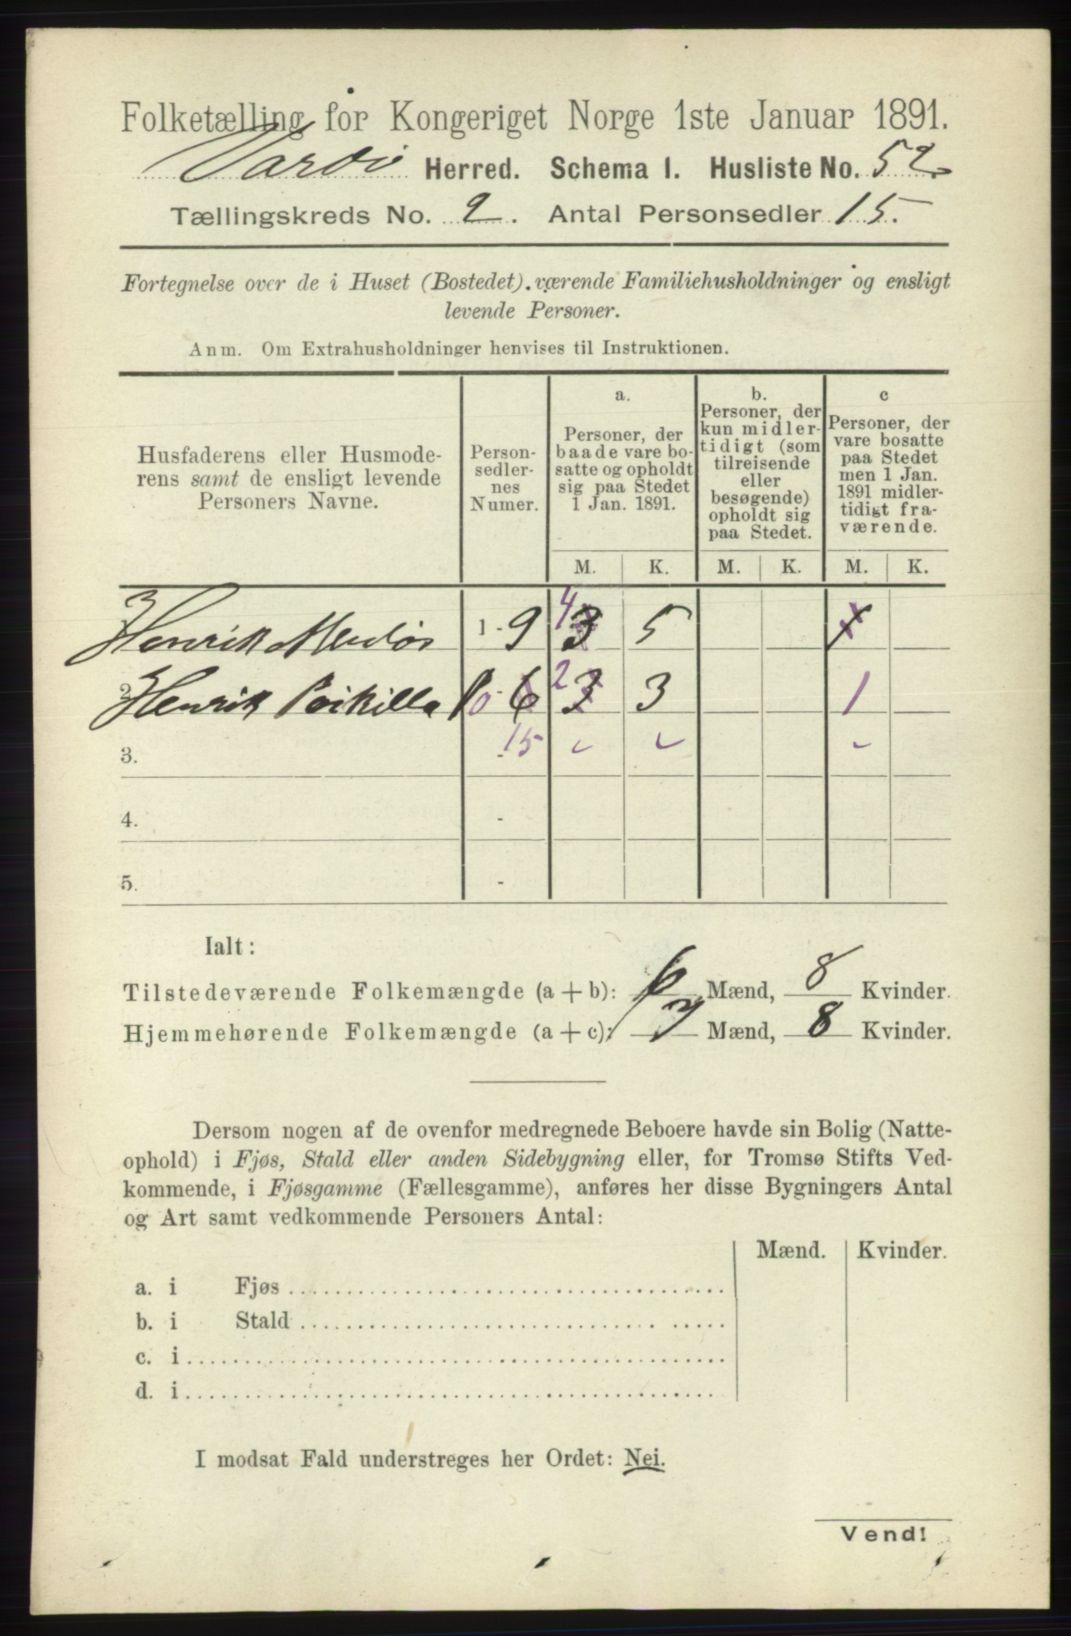 Folketælling for Kongeriget Norge 1ste Januar 1891.
Vardø Herred. Schema I. Husliste No. 52
Tællingskreds No. 2. Antal Personsedler 15.
Fortegnelse over de i Huset (Bostedet) værende Familiehusholdninger og ensligt
levende Personer.
Anm. Om Extrahusholdninger henvises til Instruktionen.
Husfaderens eller Husmode-
rens samt de ensligt levende
Personers Navne.
Person-
sedler-
nes
Numer.
a.
Personer, der
baade vare bo-
satte og opholdt
sig paa Stedet
1 Jan. 1891.
b.
Personer, der
kun midler-
tidigt (som
tilreisende
eller
besøgende)
opholdt sig
paa Stedet.
c
Personer, der
vare bosatte
paa Stedet
men 1 Jan.
1891 midler-
tidigt fra-
værende.
M. K. M. K. M. K.
Henrik 1 - 9 4 3 5 1
2. Henrik 10 - 6 2 3 3 1
3. - 15
4. -
5. -
Ialt:
Tilstedeværende Folkemængde (a + b): 6 Mænd, 8 Kvinder.
Hjemmehørende Folkemængde (a + c): 7 Mænd, 8 Kvinder.
Dersom nogen af de ovenfor medregnede Beboere havde sin Bolig (Natte-
ophold) i Fjøs, Stald eller anden Sidebygning eller, for Tromsø Stifts Ved-
kommende, i Fjøsgamme (Fællesgamme), anføres her disse Bygningers Antal
og Art samt vedkommende Personers Antal:
Mænd. Kvinder.
a. i Fjøs
b. i Stald
c. i
d. i
I modsat Fald understreges her Ordet: Nei.
Vend!